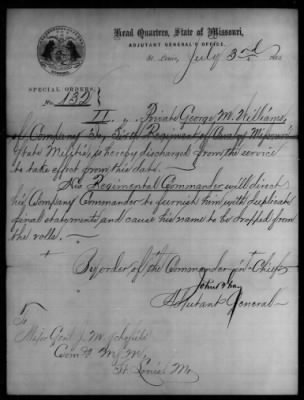 Head Quarters, State of Missouri,
ADJUTANT GENERAL'S OFFICE,
St. Louis, July 3rd 186
SPECIAL ORDERS,
No. 132
II Private George W. Williams,
of Company Sixth Regiment of Cavalry Missouri
State Militia, is hereby discharged from the service
to take effect from this date.
His Regimental Commander will direct
his Company Commander to furnish him with duplicate
final statements, and cause his name to be dropped from
the rolls.
By order of the Commander-in-Chief
Adjutant General
To
Major Genl J. M. Schofield
Comd'g
St. Louis Mo